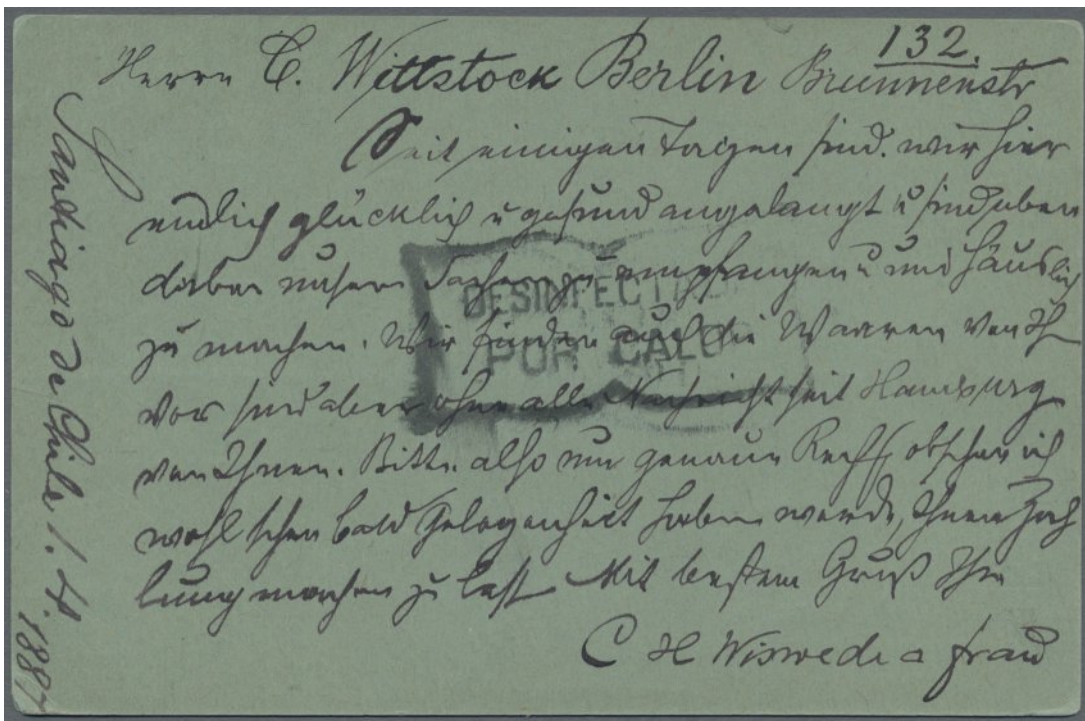 132.
Herrn C. Wittstock Berlin Brunnenstr
Seit einigen Tagen sind wir hier
endlich glücklich u gesund angelangt u sind eben
dabei unsere Sachen zu empfangen u uns häuslich
zu machen. Wir finden auch die Waaren von Ih
vor sind aber ohne alle Nachricht seit Hamburg
von Ihnen. Bitte also um genaue Rechg obschon ich
wohl schon bald Gelegenheit haben werde, Ihnen Zah
lung machen zu lass Mit bestem Gruß Ihr
C H Wiswede a frau
Santiago de Chile 1. 4. 1887
DESINFECTA
POR CALO